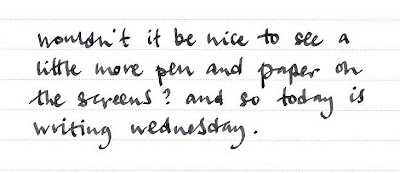 wouldn't it be nice to see a
little more pen and paper on
the screens? and so today is
writing wednesday.